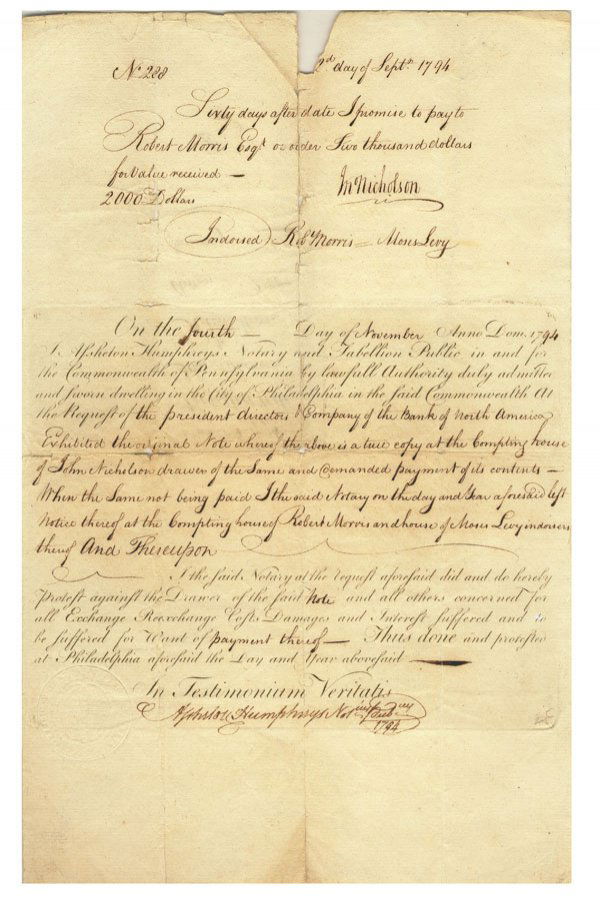 No. 288 2d day of Septr. 1794
Sixty days after date I promise to pay to
Robert Morris Esqr. or order Two thousand dollars
for Value received —
2000 Dollars Jn Nicholson
Indorsed Robt Morris — Moses Levy
On the fourth — Day of November Anno Dom. 1794
I Assheton Humphreys Notary and Tabellion Public in and for
the Commonwealth of Pennsylvania by lawfull Authority duly admitted
and sworn dwelling in the City of Philadelphia in the said Commonwealth At
the Request of the president directors & Company of the Bank of North America
Exhibited the original Note whereof the above is a true copy at the Compting house
of John Nicholson drawer of the Same and demanded payment of its contents —
When the Same not being paid I the said Notary on the day and Year aforesaid left
Notice thereof at the Compting house of Robert Morris and house of Moses Levy indorsers
therof And Thereupon
I the said Notary at the request aforesaid did and do hereby
Protest against the Drawer of the said Note and all others concerned for
all Exchange Reexchange Costs Damages and Interest suffered and to
be suffered for Want of payment therof — Thus done and protested
at Philadelphia aforesaid the Day and Year abovesaid —
In Testimonium Veritatis
Assheton Humphreys Not Pub
1794